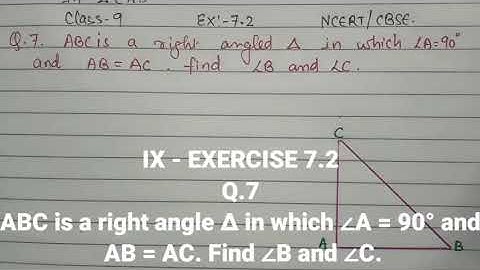 Class-9 Ex'-7.2 NCERT/CBSE.
Q.7. ABC is a right angled Δ in which ∠A=90°
and AB = AC. find ∠B and ∠C.
C
IX - EXERCISE 7.2
Q.7
ABC is a right angle Δ in which ∠A = 90° and
A B
AB = AC. Find ∠B and ∠C.